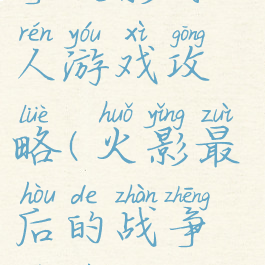 rén yóu xì gōng
人游戏攻
lüè huǒ yǐng zuì
略(火影最
hòu de zhàn zhēng
后的战争